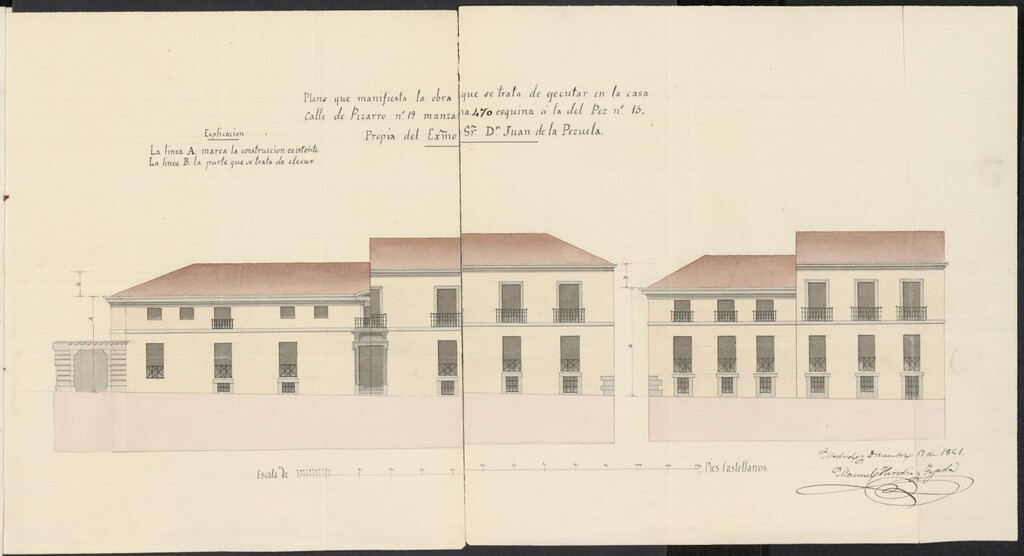 Plano que manifiesta la obra que se trata de egecutar en la casa
Calle de Pizarro nº 19 manzana 470 esquina á la del Pez nº 15.
Propia del Exmo Sr. Dn Juan de la Pezuela.
Esplicacion
La linea A. marca la construccion existente
La linea B. la parte que se trata de elevar
B
A
B
A
Escala de
Pies Castellanos
Madrid y Diciembre de 1861.
Manuel Heredia y Tejada